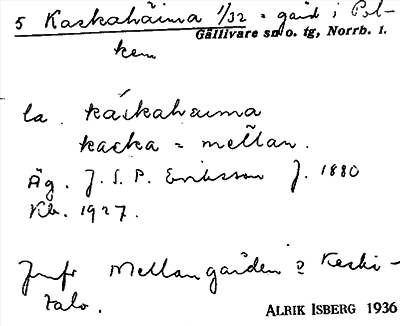 5 Kaskahäima 1/32 = gård i Pol-
Gällivare sn o. tg, Norrb. l.
kem
la. káskahæima
kaska = mellan.
Äg. J. S. P. Eriksson f. 1880
Kb. 1927.
Jmfr Mellangården o Keski-
talo.
ALRIK ISBERG 1936